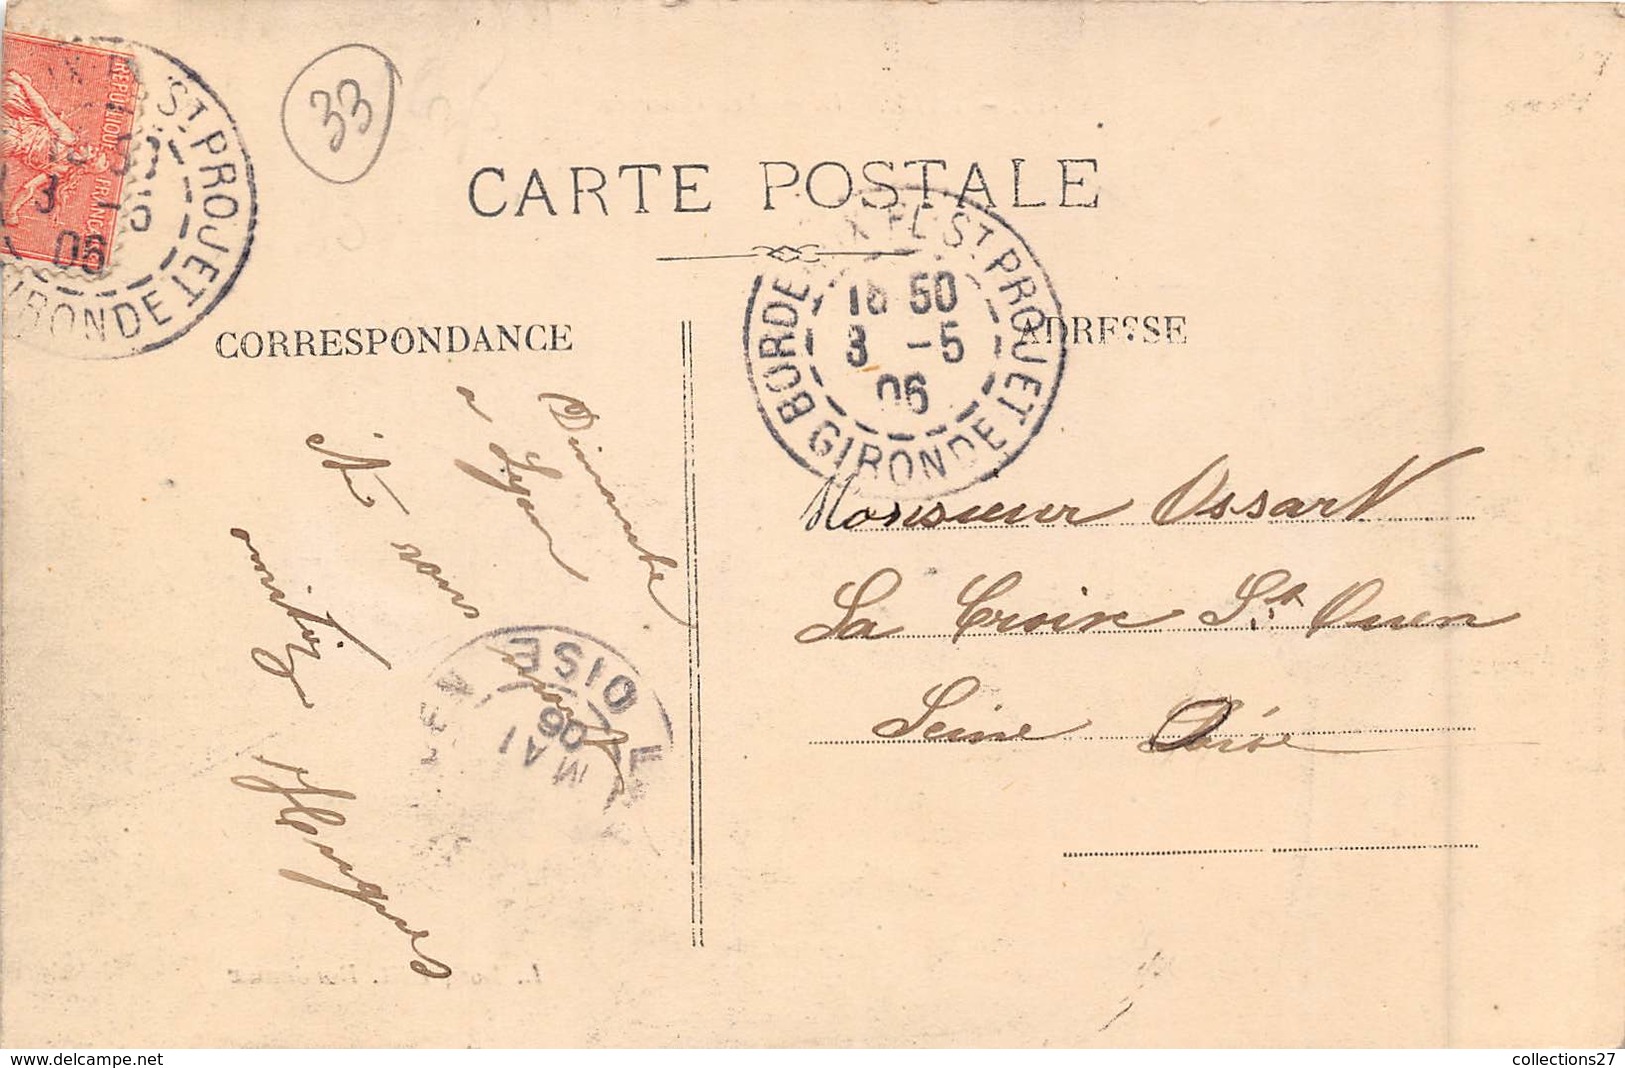 33
RÉPUBLIQUE FRANÇAISE
ST PROJET
GIRONDE
3 -5
06
CARTE POSTALE
BORDEAUX PL ST PROJET
18 50
3 -5
06
GIRONDE
CORRESPONDANCE
ADRESSE
Dimanche
a Lyon
A vous
amitiés
Hugues
OISE
06
Monsieur Ossart
La Croix St. Ouen
Seine Oise
www.delcampe.net
collections27